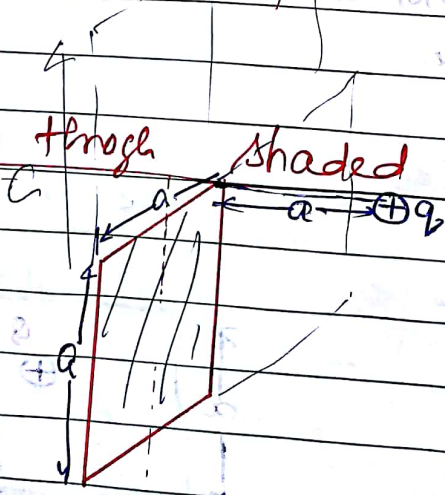 throgh shaded
a
a
+ q
a